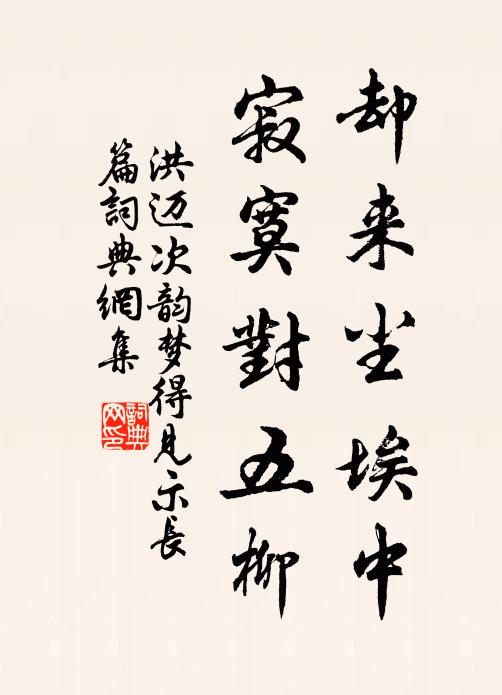 却来尘埃中
寂寞對五柳
洪迈次韵梦得见示长
篇詞典網集
詞典
网印